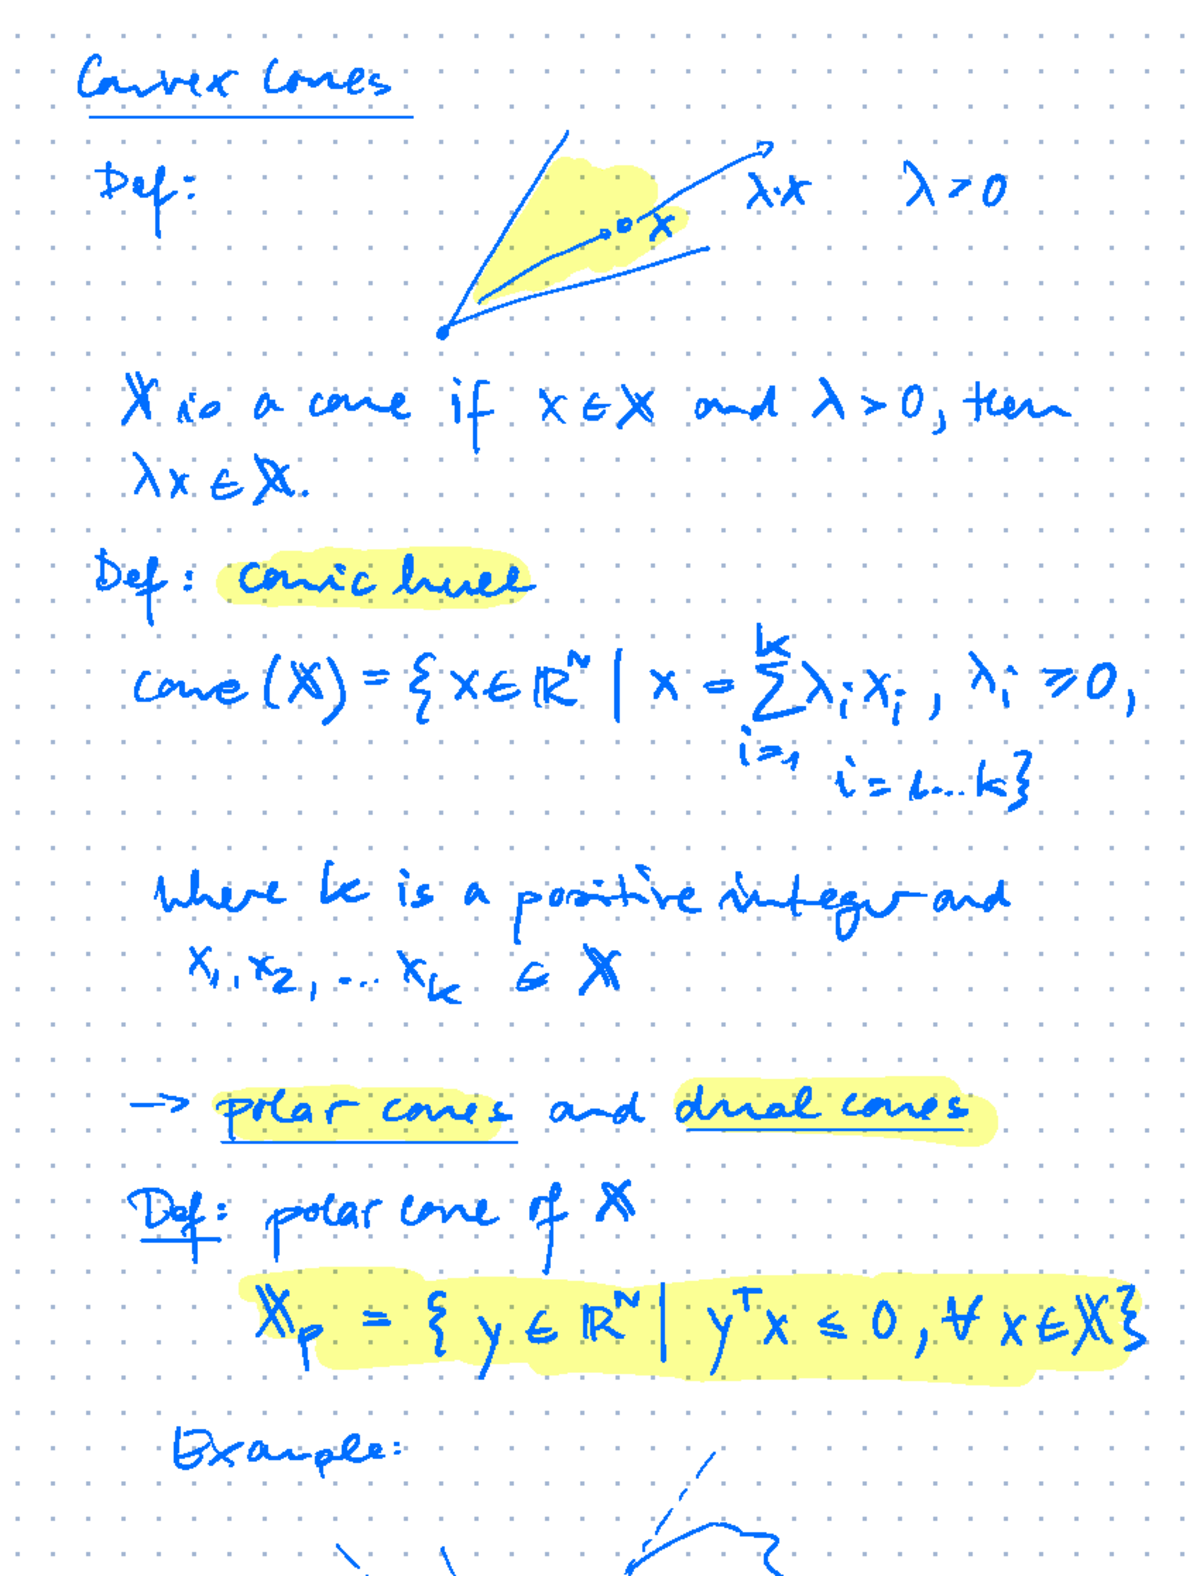 Convex Cones
Def:
x λ·x λ > 0
𝕏 is a cone if x ∈ 𝕏 and λ > 0, then
λx ∈ 𝕏.
Def: conic hull
cone (𝕏) = { x ∈ ℝᴺ | x = ∑ᵢ₌₁ᵏ λᵢ xᵢ , λᵢ ≥ 0,
i = 1...k}
where k is a positive integer and
x₁, x₂, ... xₖ ∈ 𝕏
→ polar cones and dual cones
Def: polar cone of 𝕏
𝕏ₚ = { y ∈ ℝᴺ | yᵀx ≤ 0, ∀ x ∈ 𝕏}
Example: